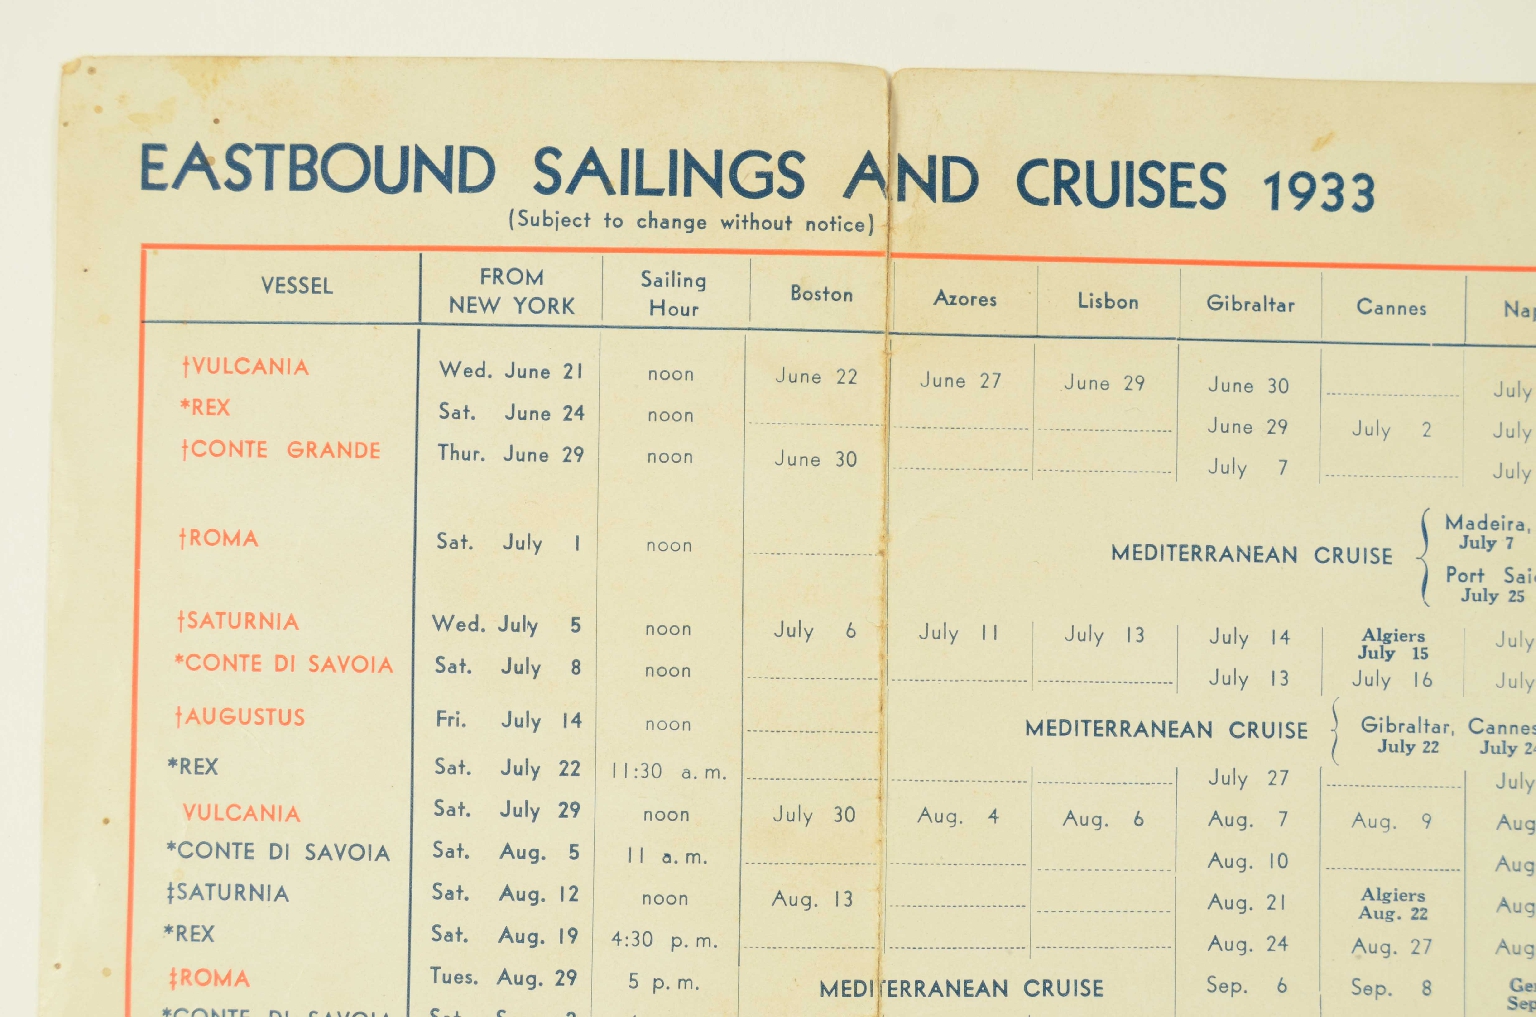 EASTBOUND SAILINGS AND CRUISES 1933
(Subject to change without notice)
VESSEL FROM NEW YORK Sailing Hour Boston Azores Lisbon Gibraltar Cannes
†VULCANIA Wed. June 21 noon June 22 June 27 June 29 June 30 July
*REX Sat. June 24 noon June 29 July 2 July
†CONTE GRANDE Thur. June 29 noon June 30 July 7 July
†ROMA Sat. July 1 noon MEDITERRANEAN CRUISE Madeira, July 7
Port July 25
†SATURNIA Wed. July 5 noon July 6 July 11 July 13 July 14 Algiers July 15 July
*CONTE DI SAVOIA Sat. July 8 noon July 13 July 16 July
†AUGUSTUS Fri. July 14 noon MEDITERRANEAN CRUISE Gibraltar, July 22 Cannes July
*REX Sat. July 22 11:30 a.m. July 27 July
VULCANIA Sat. July 29 noon July 30 Aug. 4 Aug. 6 Aug. 7 Aug. 9 Aug
*CONTE DI SAVOIA Sat. Aug. 5 11 a.m. Aug. 10 Aug
‡SATURNIA Sat. Aug. 12 noon Aug. 13 Aug. 21 Algiers Aug. 22 Aug
*REX Sat. Aug. 19 4:30 p.m. Aug. 24 Aug. 27 Aug
‡ROMA Tues. Aug. 29 5 p.m. MEDITERRANEAN CRUISE Sep. 6 Sep. 8
*CONTE DI SAVOIA Sat.